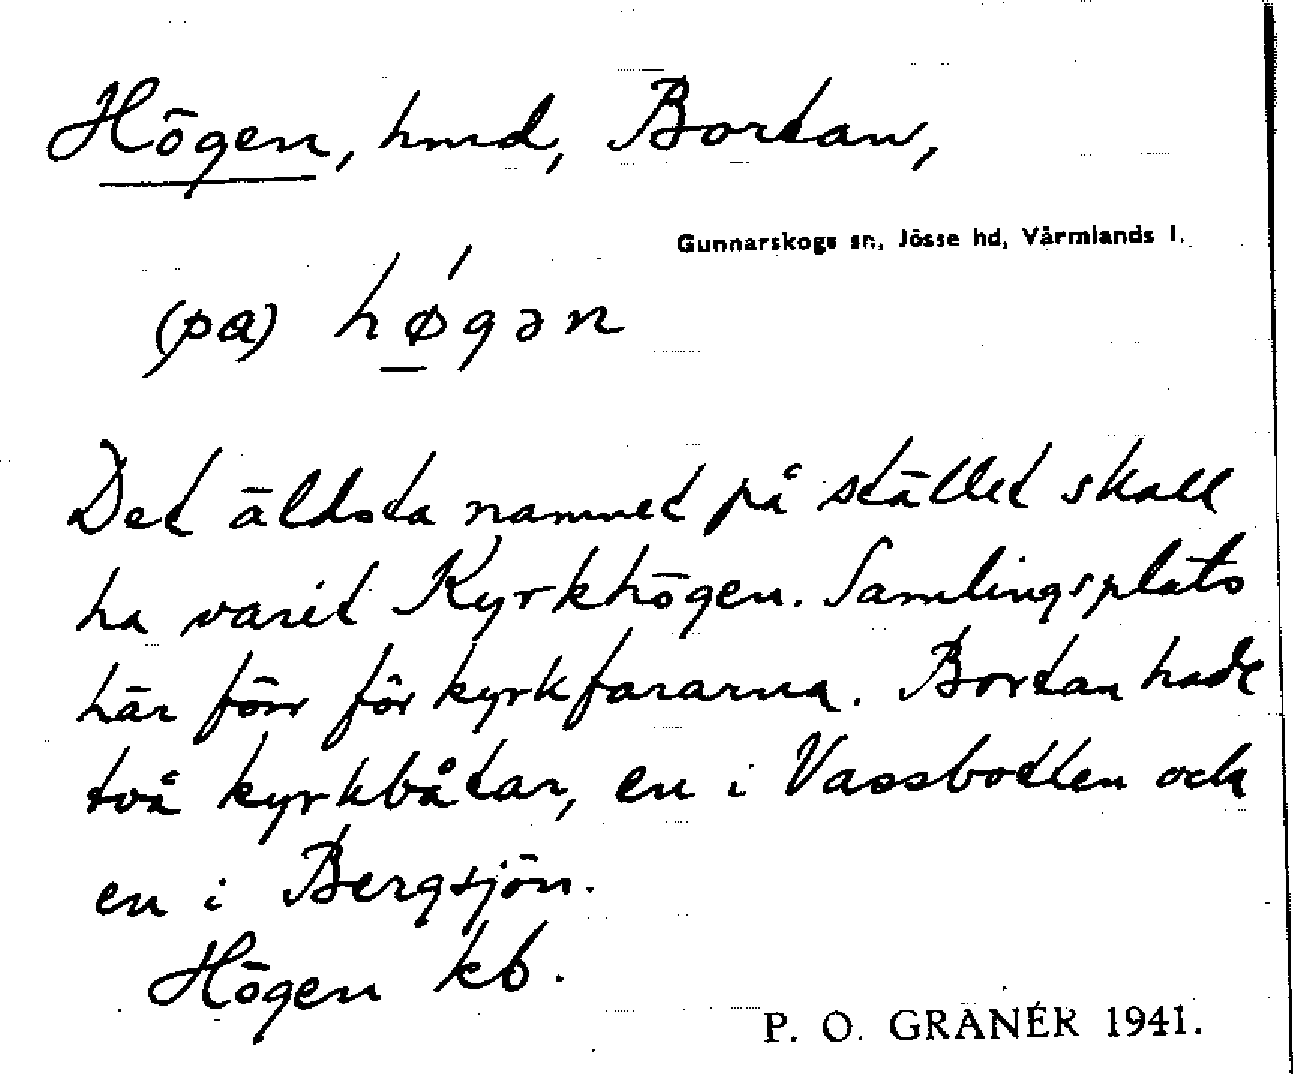 Högen, hmd, Bortan,
Gunnarskogs sn, Jösse hd, Värmlands l.
(pa) hǿ̱gən
Det äldsta namnet på stället skall
ha varit Kyrkhögen. Samlingsplats
här förr för kyrkfararna. Bortan hade
två kyrkbåtar, en i Vassbotten och
en i Bergsjön.
Högen kb.
P. O. GRÄNÉR 1941.